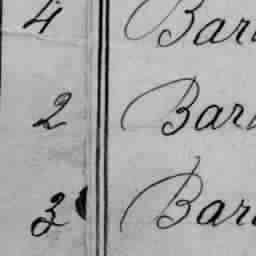 4 Bar
2 Bar
3 Bar